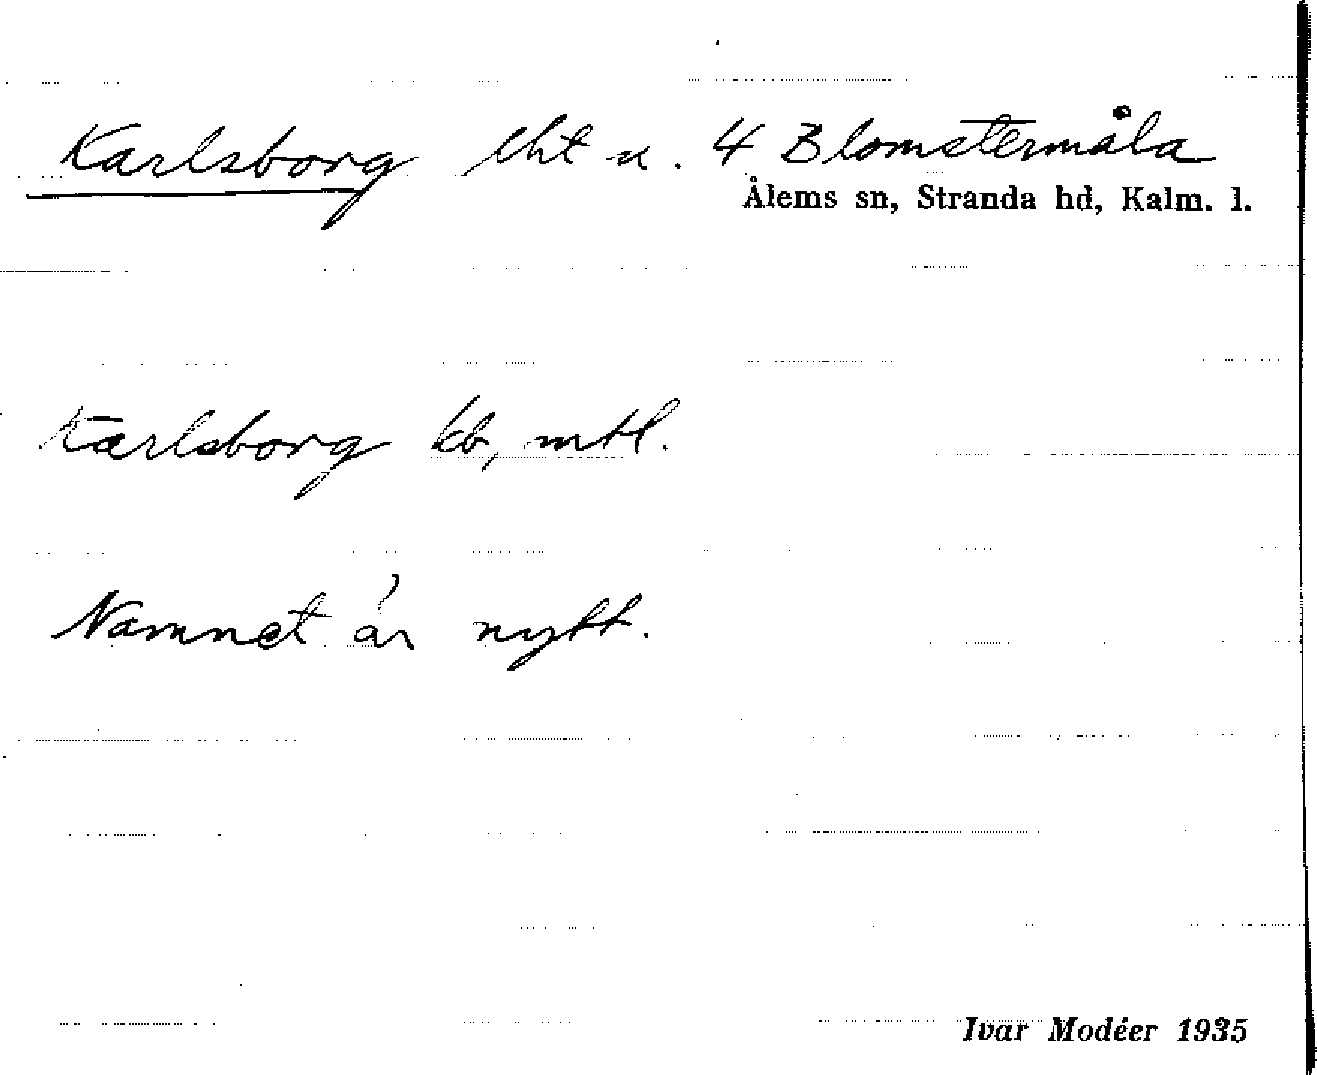 Karlsborg lht u. 4 Blomstermåla
Ålems sn, Stranda hd, Kalm. l.
Karlsborg kb, mtl.
Namnet är nytt.
Ivar Modéer 1935